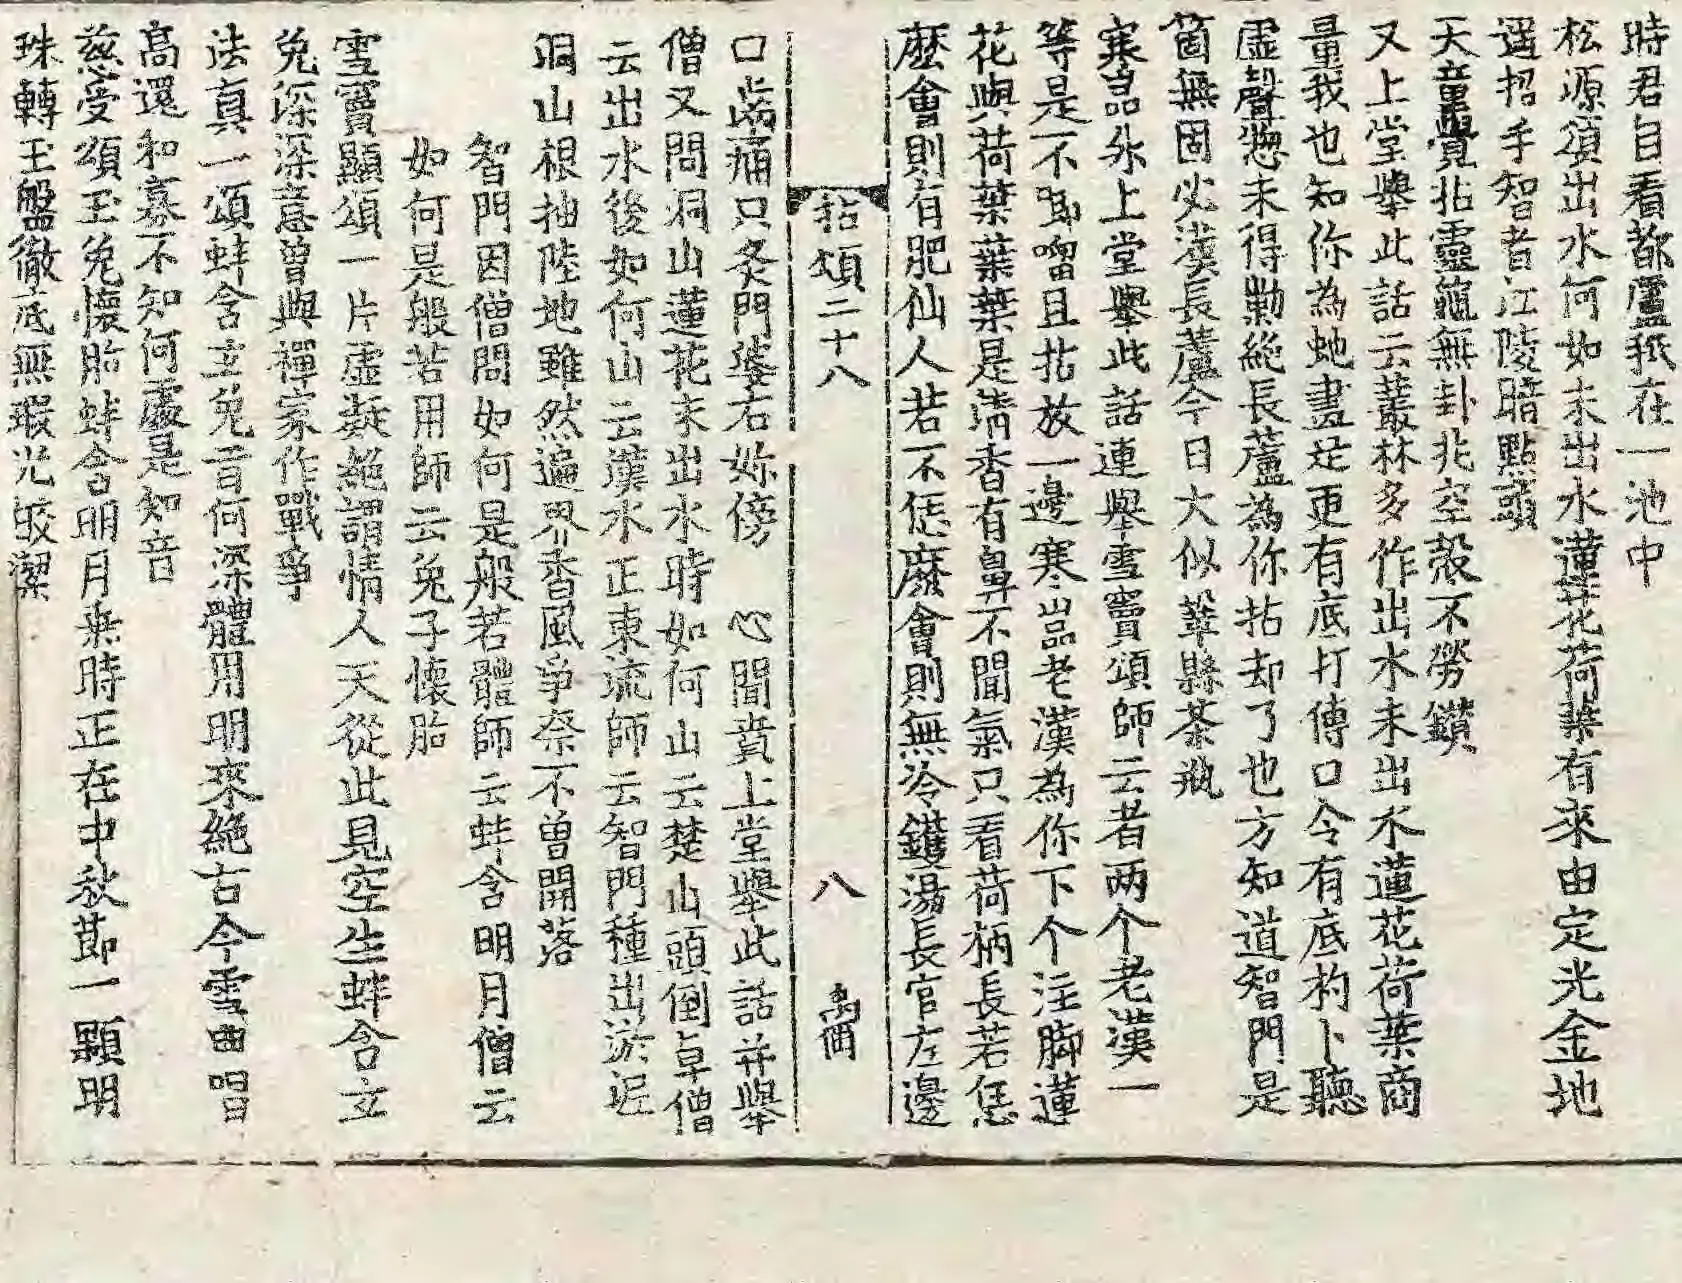 時君自看都盧秖在一池中
松源頌出水何如未出水蓮花荷葉有來由定光金地
遥招手智者江陵暗點頭
天童覺拈靈龜無卦兆空殼不勞鑚
又上堂舉此話云叢林多作出水未出水蓮花荷葉商
量我也知你為虵畫足更有底打傳口令有底杓卜聽
虛聲惣未得勦絶長蘆為你拈却了也方知道智門是
箇無固必漢長蘆今日大似葦縣茶瓶
寒嵒外上堂舉此話連舉雪竇頌師云者两个老漢一
等是不唧𠺕且拈放一邊寒嵒老漢為你下个注脚蓮
花與荷葉葉葉是清香有鼻不聞氣只看荷柄長若恁
麽會則有肥仙人若不恁麽會則無冷鑊湯長官左邊
拈頌二十八 八
口齒痛只灸門䇿右妳傍 心聞賁上堂舉此話并舉
僧又問洞山蓮花未出水時如何山云楚山頭倒卓僧
云出水後如何山云漢水正東流師云智門種出淤泥
洞山根抽陸地雖然遍界香風爭奈不曾開落
智門因僧問如何是般若體師云蚌含明月僧云
如何是般若用師云兔子懷胎
雪竇顯頌一片虛凝絶謂情人天從此見空生蚌含玄
兔深深意曾與禪家作戰爭
法真一頌蚌含玄兔旨何深體用明來絶古今雪曲唱
高還和寡不知何處是知音
慈受頌玉兔懷胎蚌含明月無時正在中秋節一顆明
珠轉玉盤徹底無瑕光皎潔